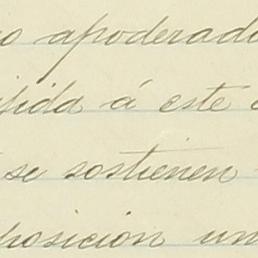 o apoderado
ida á este
se sostienen
posición un